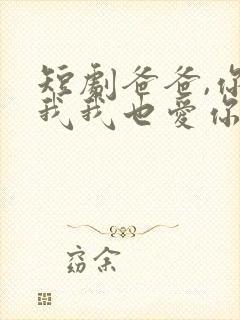 短剧爸爸,你
我我也爱你
窈余